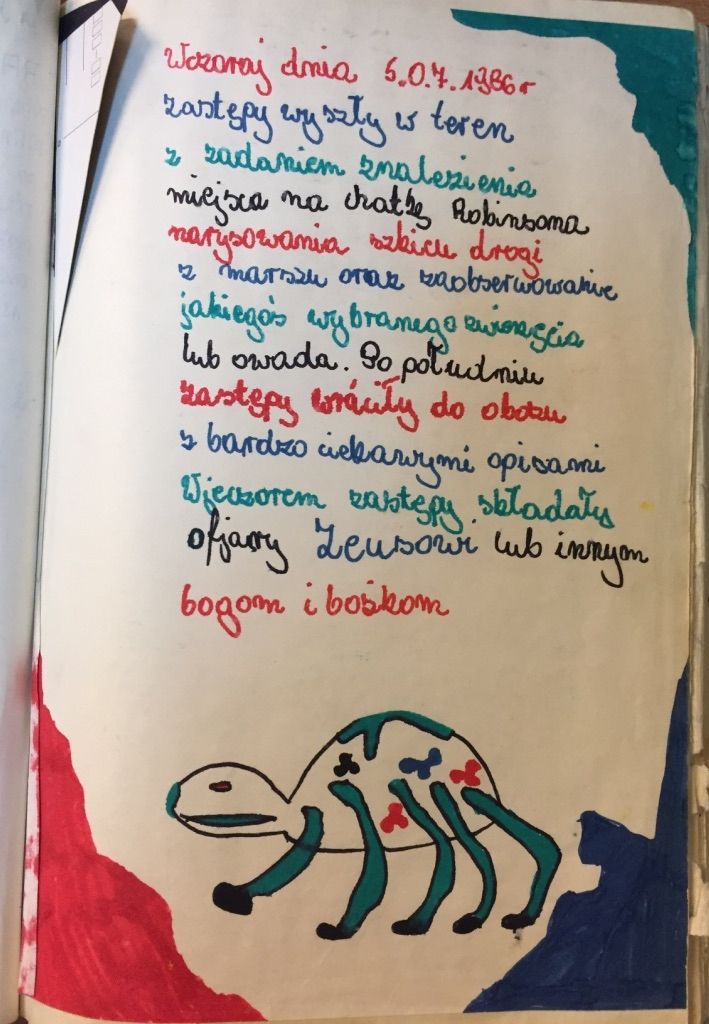 Wczoraj dnia 5.07.1986r
zastępy wyszły w teren
z zadaniem znalezienia
miejsca na chatkę Robinsona
narysowania szkicu drogi
z marszu oraz zaobserwowanie
jakiegoś wybranego zwierzęcia
lub owada. Po południu
zastępy wróciły do obozu
z bardzo ciekawymi opisami
Wjeczorem zastępy składały
ofjary Zeusowi lub innym
bogom i bożkom